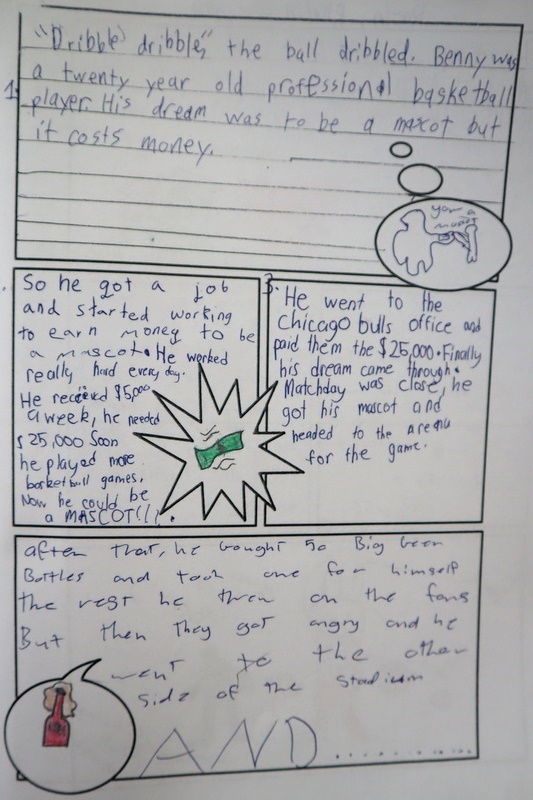 "Dribble dribble," the ball dribbled. Benny was
1. a twenty year old professional basketball
player. His dream was to be a mascot but
it costs money.
your a
mascot
So he got a job
and started working
to earn money to be
a mascot. He worked
really hard every day.
He received $5,000
a week, he needed
$25,000 Soon
he played more
basketball games.
Now he could be
a MASCOT!!!.
3. He went to the
Chicago bulls office and
paid them the $25,000. Finally
his dream came through.
Matchday was close, he
got his mascot and
headed to the arena
for the game.
after that, he bought 50 Big beer
Bottles and took one for himself
the rest he threw on the fans
But then they got angry and he
went to the other
side of the stadium
AND..............